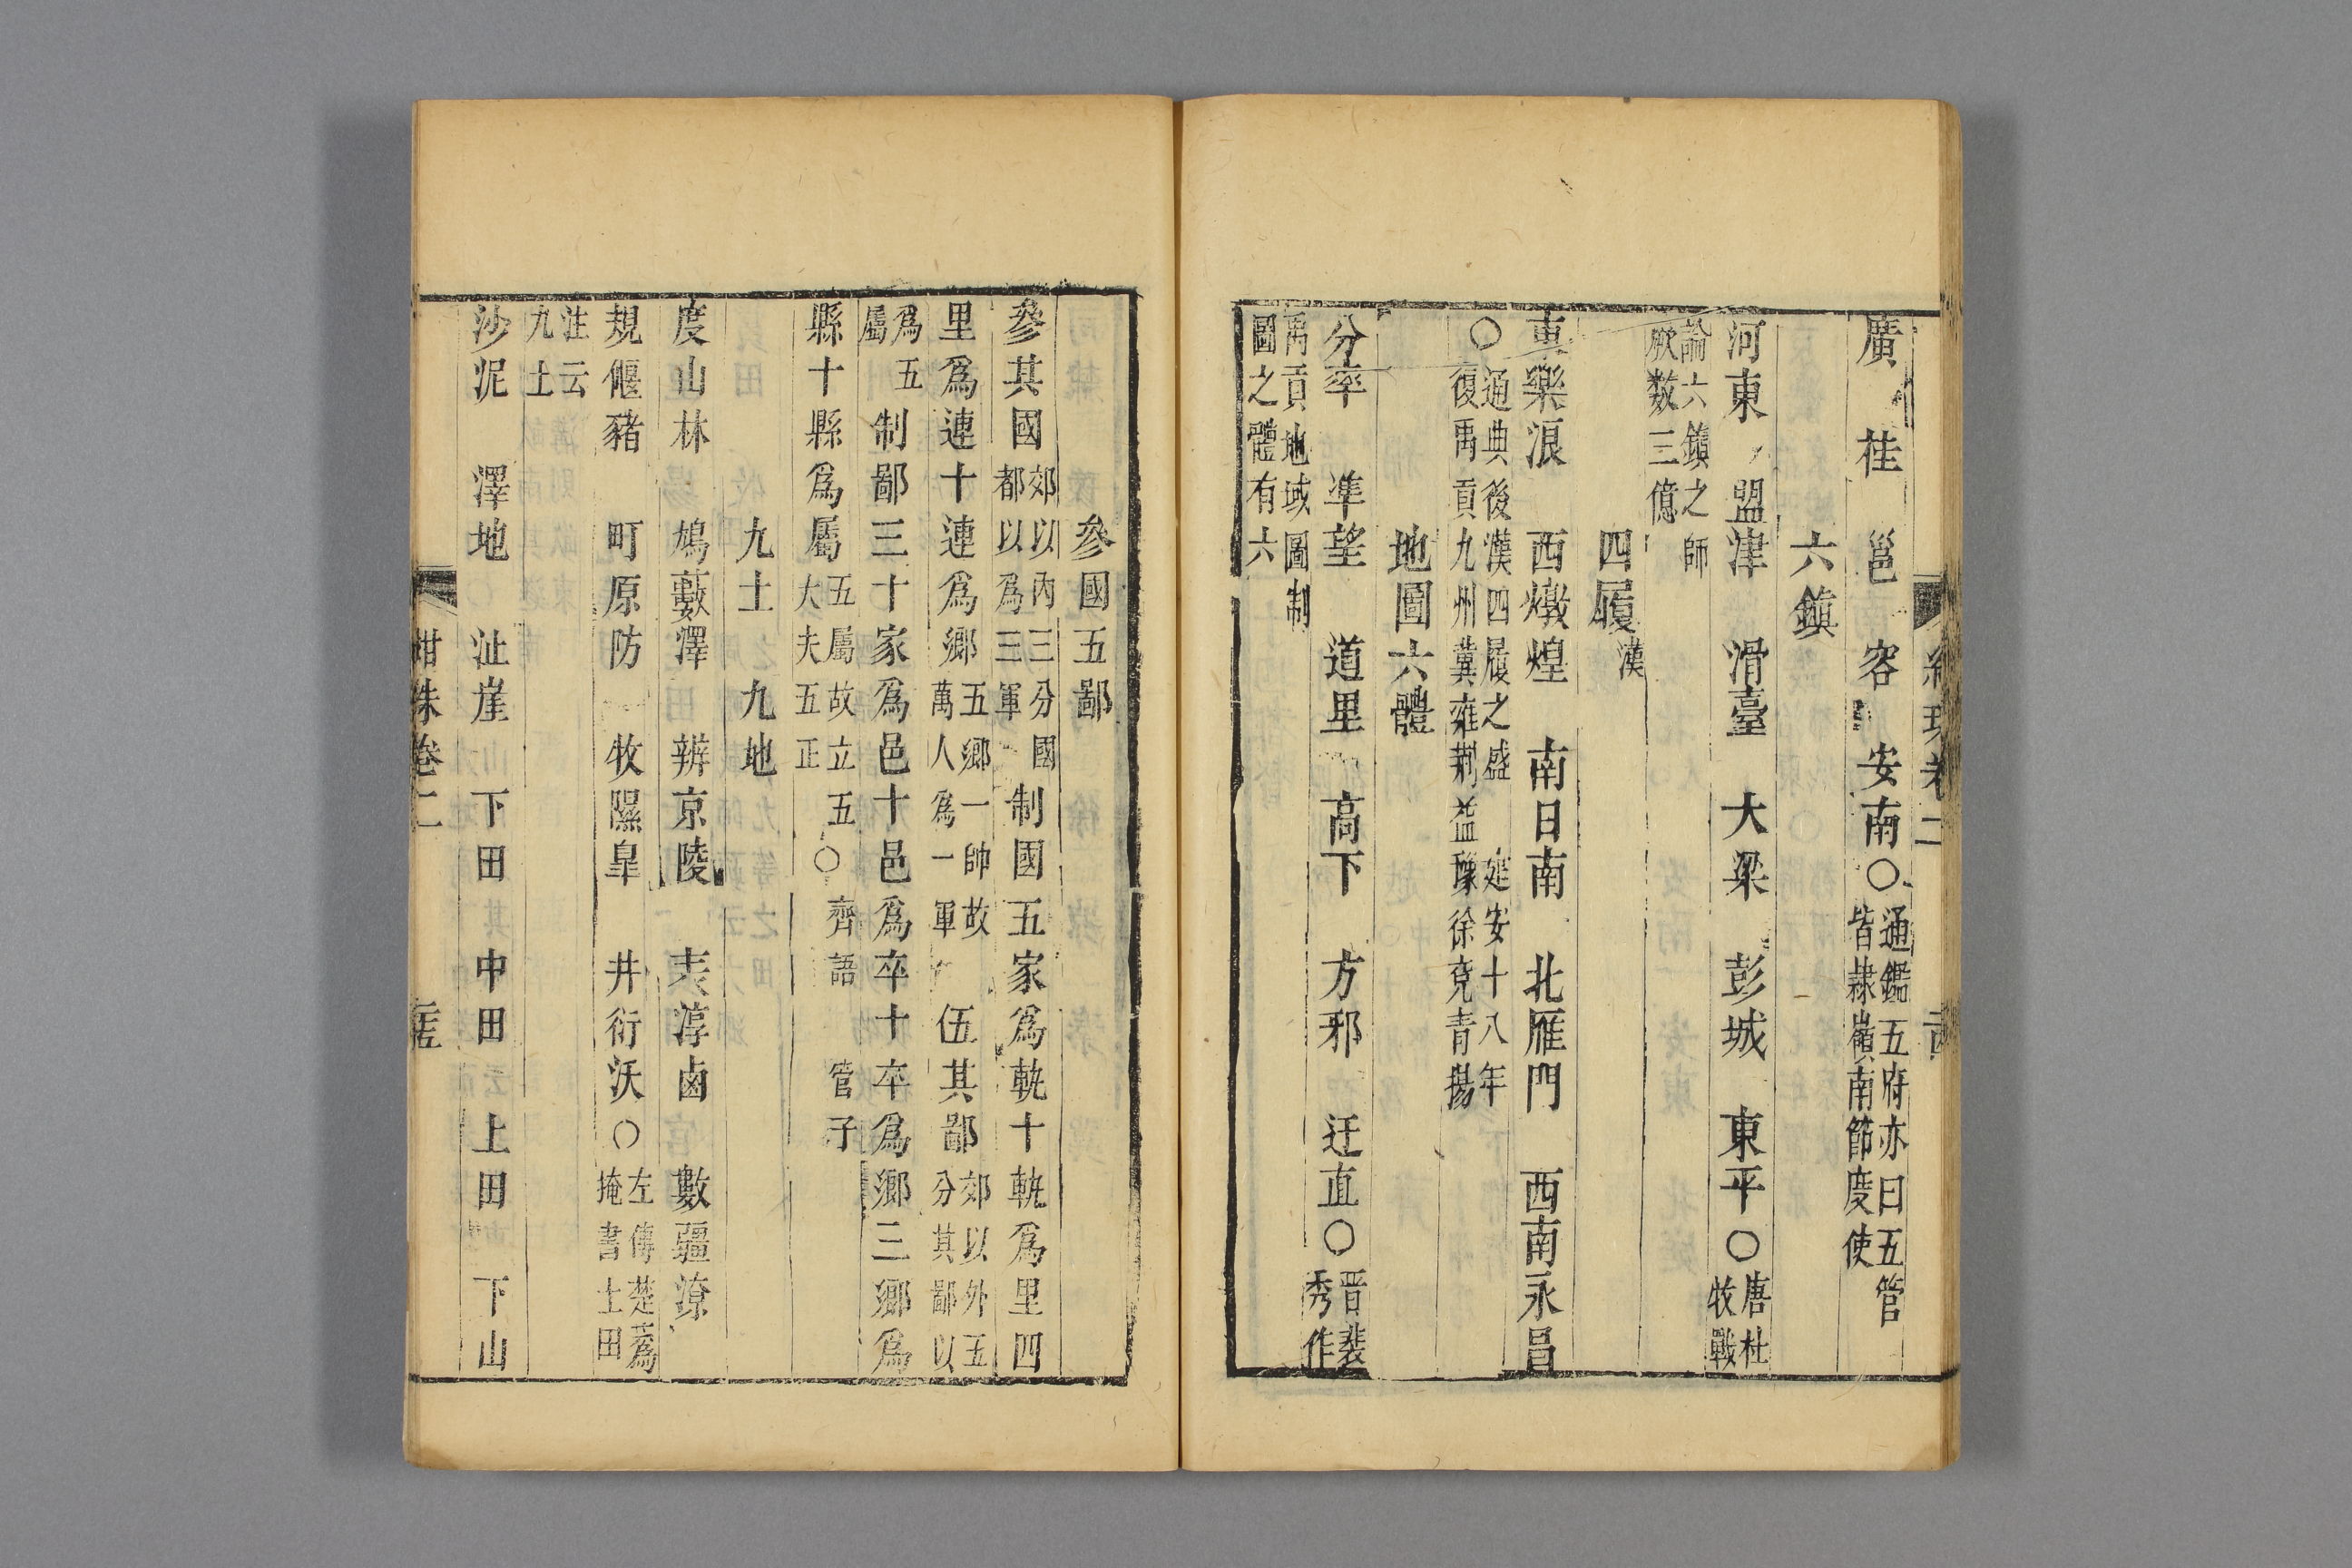 廣 桂 邕 容 安南○通鑑五府亦曰五管
皆隷嶺南節度使
六鎮
河東 盟津 滑臺 大梁 彭城 東平○唐杜
牧戰
論六鎮之師
厥数三億
四履漢
東樂浪 西燉煌 南日南 北雁門 西南永昌
○通典後漢四履之盛 延安十八年
復禹貢九州冀雍荆益豫徐兗青揚
地圖六體
分率 準望 道里 高下 方邪 迂直○晋裴
秀作
禹貢地域圖制
圖之體有六
參國五鄙
參其國郊以內三分國
都以爲三軍制國五家爲軌十軌爲里四
里爲連十連爲鄉五鄉一帥故
萬人爲一軍 伍其鄙郊以外五
分其鄙以
爲五
屬制鄙三十家爲邑十邑爲卒十卒爲鄉三鄉爲
縣十縣爲屬五屬故立五○齊語 管子
大夫五正
九土 九地
度山林 鳩藪澤 辨京陵 表淳鹵 數疆潦
規偃豬 町原防 牧隰皐 井衍沃○左傳楚蒍
掩書土田
注云
九土
沙泥 澤地 沚崖 下田 中田 上田 下山
紺珠卷二